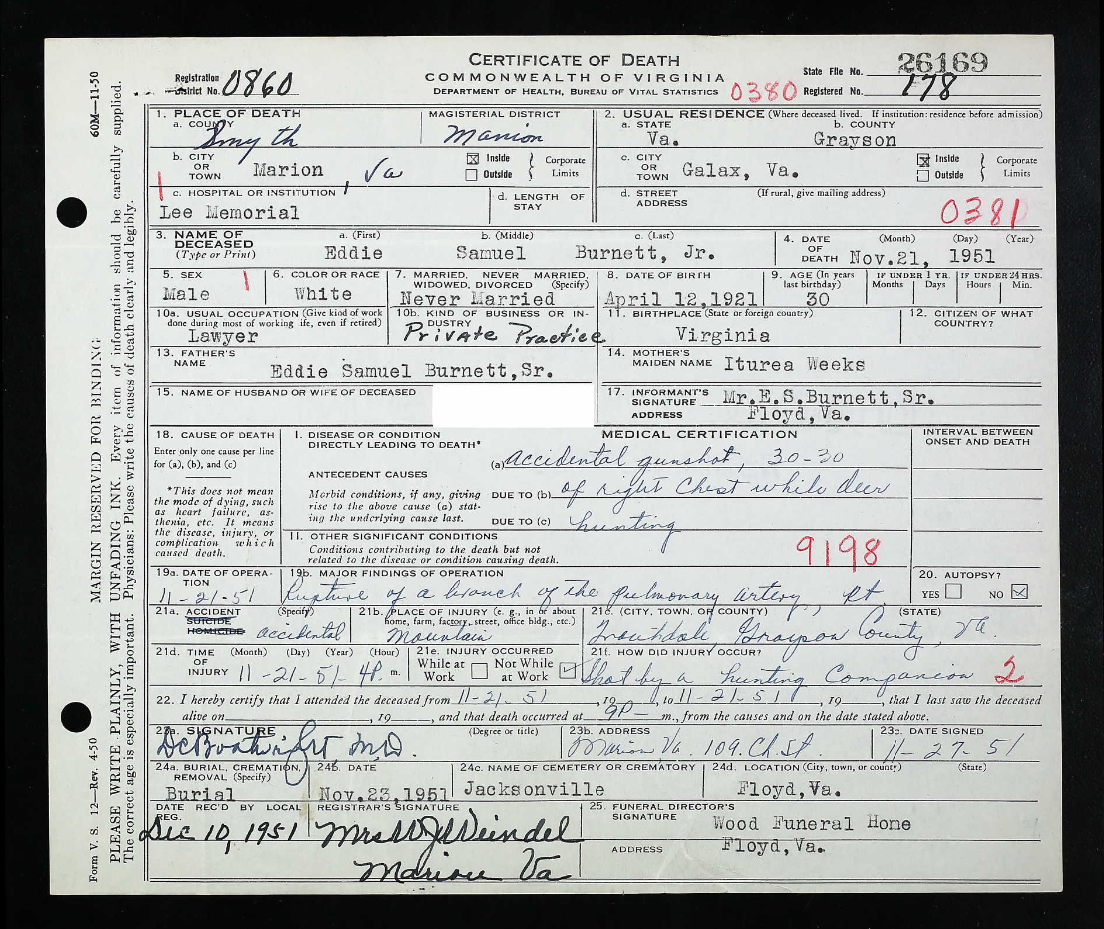 CERTIFICATE OF DEATH
COMMONWEALTH OF VIRGINIA
DEPARTMENT OF HEALTH, BUREAU OF VITAL STATISTICS 0380
Registration District No. 0860
State File No. 26169
Registered No. 178
1. PLACE OF DEATH
a. COUNTY Smyth
MAGISTERIAL DISTRICT Marion
b. CITY OR TOWN Marion, Va
Inside
Outside
Corporate Limits
c. HOSPITAL OR INSTITUTION
Lee Memorial
d. LENGTH OF STAY
2. USUAL RESIDENCE (Where deceased lived. If institution: residence before admission)
a. STATE Va.
b. COUNTY Grayson
c. CITY OR TOWN Galax, Va.
Inside
Outside
Corporate Limits
d. STREET ADDRESS (If rural, give mailing address)
0381
3. NAME OF DECEASED (Type or Print)
a. (First) Eddie
b. (Middle) Samuel
c. (Last) Burnett, Jr.
4. DATE OF DEATH (Month) (Day) (Year)
Nov.21, 1951
5. SEX Male
6. COLOR OR RACE White
7. MARRIED, NEVER MARRIED, WIDOWED, DIVORCED (Specify)
Never Married
8. DATE OF BIRTH
April 12,1921
9. AGE (In years last birthday) 30
IF UNDER 1 YR. Months Days
IF UNDER 24 HRS. Hours Min.
10a. USUAL OCCUPATION (Give kind of work done during most of working ife, even if retired)
Lawyer
10b. KIND OF BUSINESS OR INDUSTRY
Private Practice
11. BIRTHPLACE (State or foreign country)
Virginia
12. CITIZEN OF WHAT COUNTRY?
13. FATHER'S NAME
Eddie Samuel Burnett,Sr.
14. MOTHER'S MAIDEN NAME Iturea Weeks
15. NAME OF HUSBAND OR WIFE OF DECEASED
17. INFORMANT'S SIGNATURE Mr.E.S.Burnett,Sr.
ADDRESS Floyd,Va.
18. CAUSE OF DEATH
Enter only one cause per line for (a), (b), and (c)
*This does not mean the mode of dying, such as heart failure, asthenia, etc. It means the disease, injury, or complication which caused death.
MEDICAL CERTIFICATION
INTERVAL BETWEEN ONSET AND DEATH
I. DISEASE OR CONDITION DIRECTLY LEADING TO DEATH*
(a) Accidental gunshot, 30-30
ANTECEDENT CAUSES
Morbid conditions, if any, giving rise to the above cause (a) stating the underlying cause last.
DUE TO (b) of right Chest while deer
DUE TO (c) hunting
II. OTHER SIGNIFICANT CONDITIONS
Conditions contributing to the death but not related to the disease or condition causing death.
9198
19a. DATE OF OPERATION
11-21-51
19b. MAJOR FINDINGS OF OPERATION
Rupture of a branch of the pulmonary artery Rt
20. AUTOPSY?
YES NO
21a. ACCIDENT SUICIDE HOMICIDE (Specify)
accidental
21b. PLACE OF INJURY (e. g., in or about home, farm, factory, street, office bldg., etc.)
Mountain
21c. (CITY, TOWN, OR COUNTY) (STATE)
Troutdale Grayson County, Va.
21d. TIME OF INJURY (Month) (Day) (Year) (Hour)
11-21-51 4P. m.
21e. INJURY OCCURRED
While at Work Not While at Work
21f. HOW DID INJURY OCCUR?
Shot by a hunting Companion 2
22. I hereby certify that I attended the deceased from 11-21-51, 19, to 11-21-51, 19, that I last saw the deceased
alive on, 19, and that death occurred at 9P m., from the causes and on the date stated above.
23a. SIGNATURE (Degree or title)
DC Boatwright M.D.
23b. ADDRESS
Marion Va. 109. Ch. St.
23c. DATE SIGNED
11-27-51
24a. BURIAL, CREMATION, REMOVAL (Specify)
Burial
24b. DATE
Nov.23,1951
24c. NAME OF CEMETERY OR CREMATORY
Jacksonville
24d. LOCATION (City, town, or county) (State)
Floyd,Va.
DATE REC'D BY LOCAL REG.
Dec 10, 1951
REGISTRAR'S SIGNATURE
Mrs W J Weindel
Marion Va
25. FUNERAL DIRECTOR'S SIGNATURE Wood Funeral Home
ADDRESS Floyd,Va.
Form V. S. 12—Rev. 4-50
60M—11-50
MARGIN RESERVED FOR BINDING
PLEASE WRITE PLAINLY, WITH UNFADING INK. Every item of information should be carefully supplied.
The correct age is especially important. Physicians: Please write the causes of death clearly and legibly.